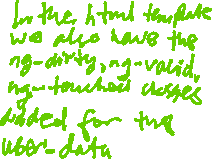 In the html template
we also have the
ng-dirty, ng-valid,
ng-touched classes
added for the
user-data